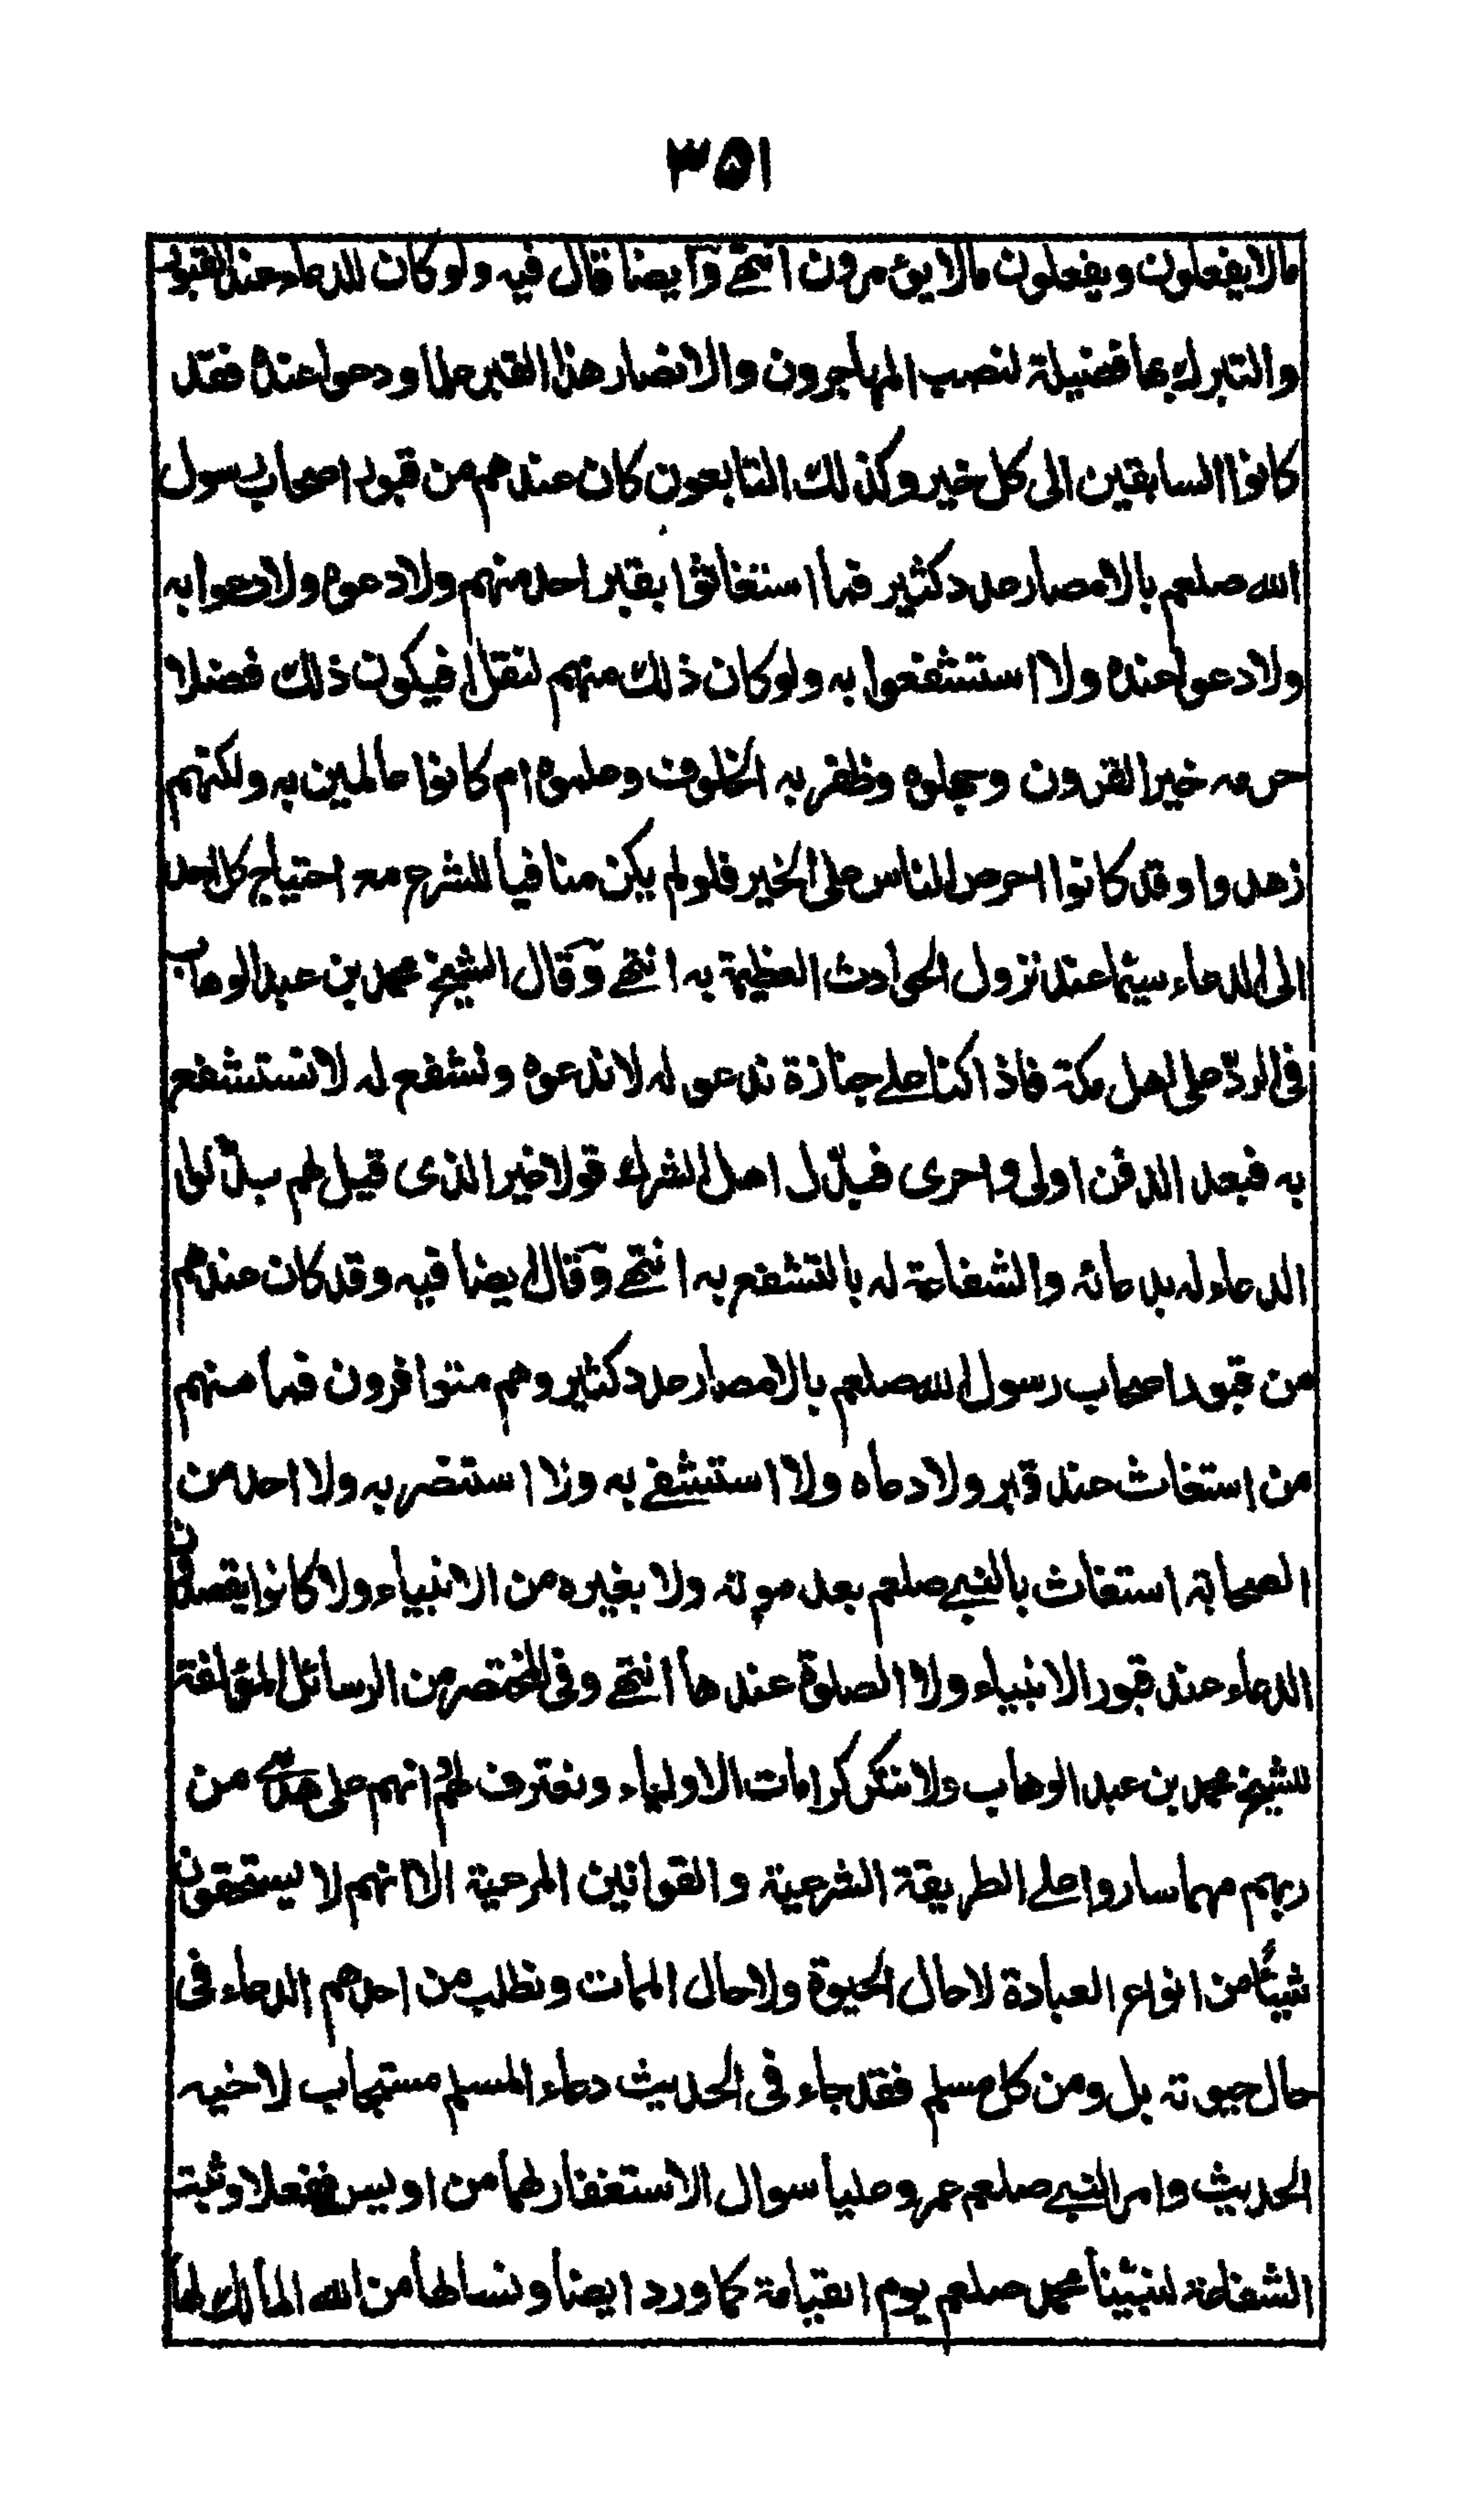 ٣٥١
مالا يفعلون ويفعلون مالا يؤمرون انتهى وايضا قال فيه ولو كان للدعاء عند القبور
والتبرك بها فضيلة لنصب المهاجرون والانصار هذا القبر علما ودعوا عنده فقد
كانوا السابقين الى كل خير وكذلك التابعون كان عندهم من قبور اصحاب رسول
الله صلعم بالامصار عدد كثير فما استغاثوا بقبر احد منهم ولا دعوه ولا دعوا به
ولا دعوا عنده ولا استشفعوا به ولو كان ذلك منهم لنقل افيكون ذلك فضلا
حرمه خير القرون وجهلوه وظفر به الخلوف وعلموه ام كانوا عالمين به ولكنهم
زهدوا وقد كانوا احرص الناس على الخير فلو لم يكن منافيا للشرع مع احتياج كل احد
الى الدعاء سيما عند نزول الحوادث العظيمة به انتهى وقال الشيخ محمد بن عبد الوهاب
فى الرد على اهل مكة فاذا كنا على جنازة ندعو له لا ندعوه ونشفع له لا نستشفع
به فبعد الدفن اولى واحرى فبدّل اهل الشرك قولا غير الذى قيل لهم بدّلوا
الدعاء له بدعائه والشفاعة له بالتشفع به انتهى وقال ايضا فيه وقد كان عندهم
من قبور اصحاب رسول الله صلعم بالامصار عدد كثير وهم متوافرون فما منهم
من استغاث عند قبر ولا دعاه ولا استشفى به ولا استنصر به ولا احد من
الصحابة استغاث بالنبى صلعم بعد موته ولا بغيره من الانبياء ولا كانوا يقصدون
الدعاء عند قبور الانبياء ولا الصلوة عندها انتهى وفى المختصر من الرسائل المؤلفة
للشيخ محمد بن عبد الوهاب ولا ننكر كرامات الاولياء ونعترف لهم انهم على هدى من
ربهم مهما ساروا على الطريقة الشرعية والقوانين المرعية الا انهم لا يستحقون
شيئا من انواع العبادة لا حال الحيوة ولا حال الممات ونطلب من احدهم الدعاء فى
حال حيوته بل ومن كل مسلم فقد جاء فى الحديث دعاء المسلم مستجاب لاخيه
الحديث وامر النبى صلعم عمر وعليا سوال الاستغفار لهما من اويس ففعلا وثبت
الشفاعة لنبينا محمد صلعم يوم القيامة كما ورد ايضا ونسالها من الله المالك لها